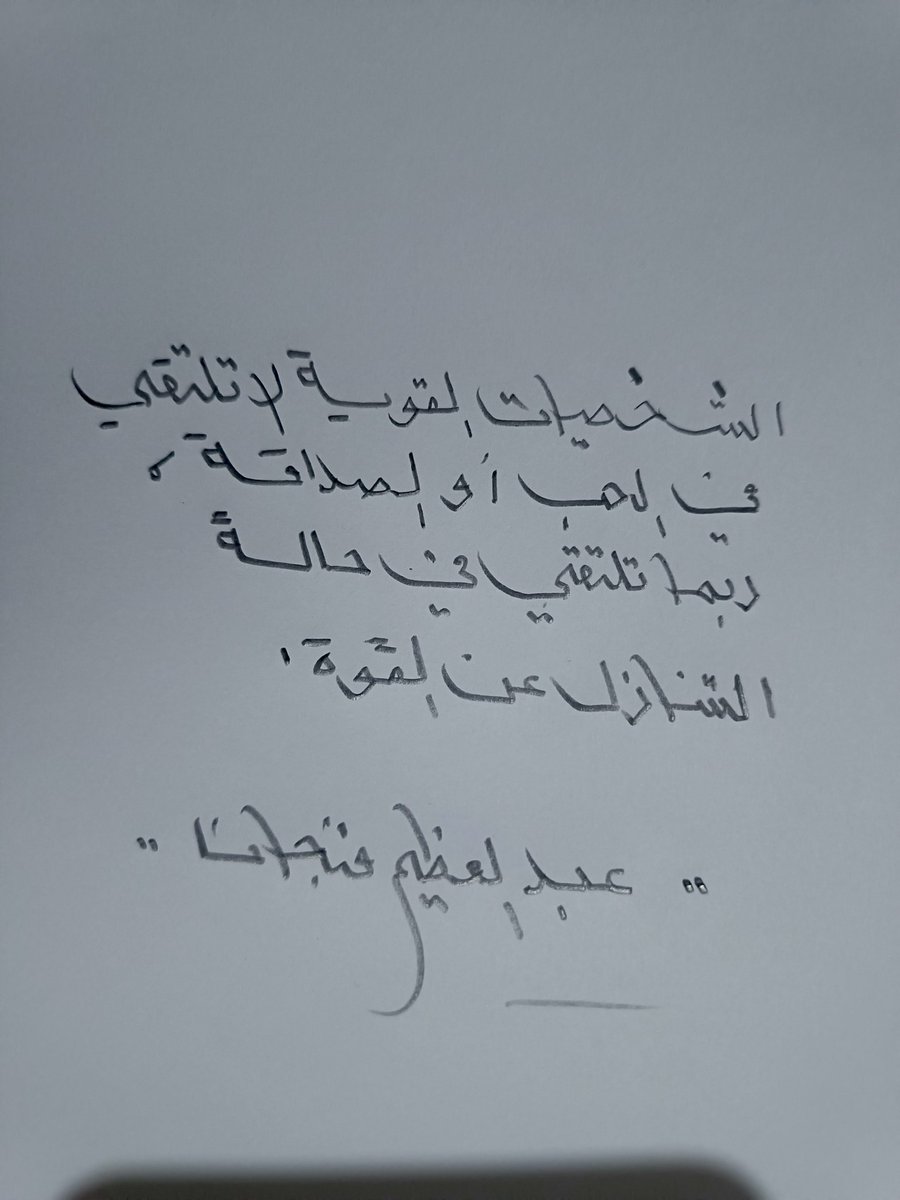 الشخصيات القوية لا تلتقي
في الحب أو الصداقة ،
ربما تلتقي في حالة
التنازل عن القوة .
.. عبد العظيم فنجان ..